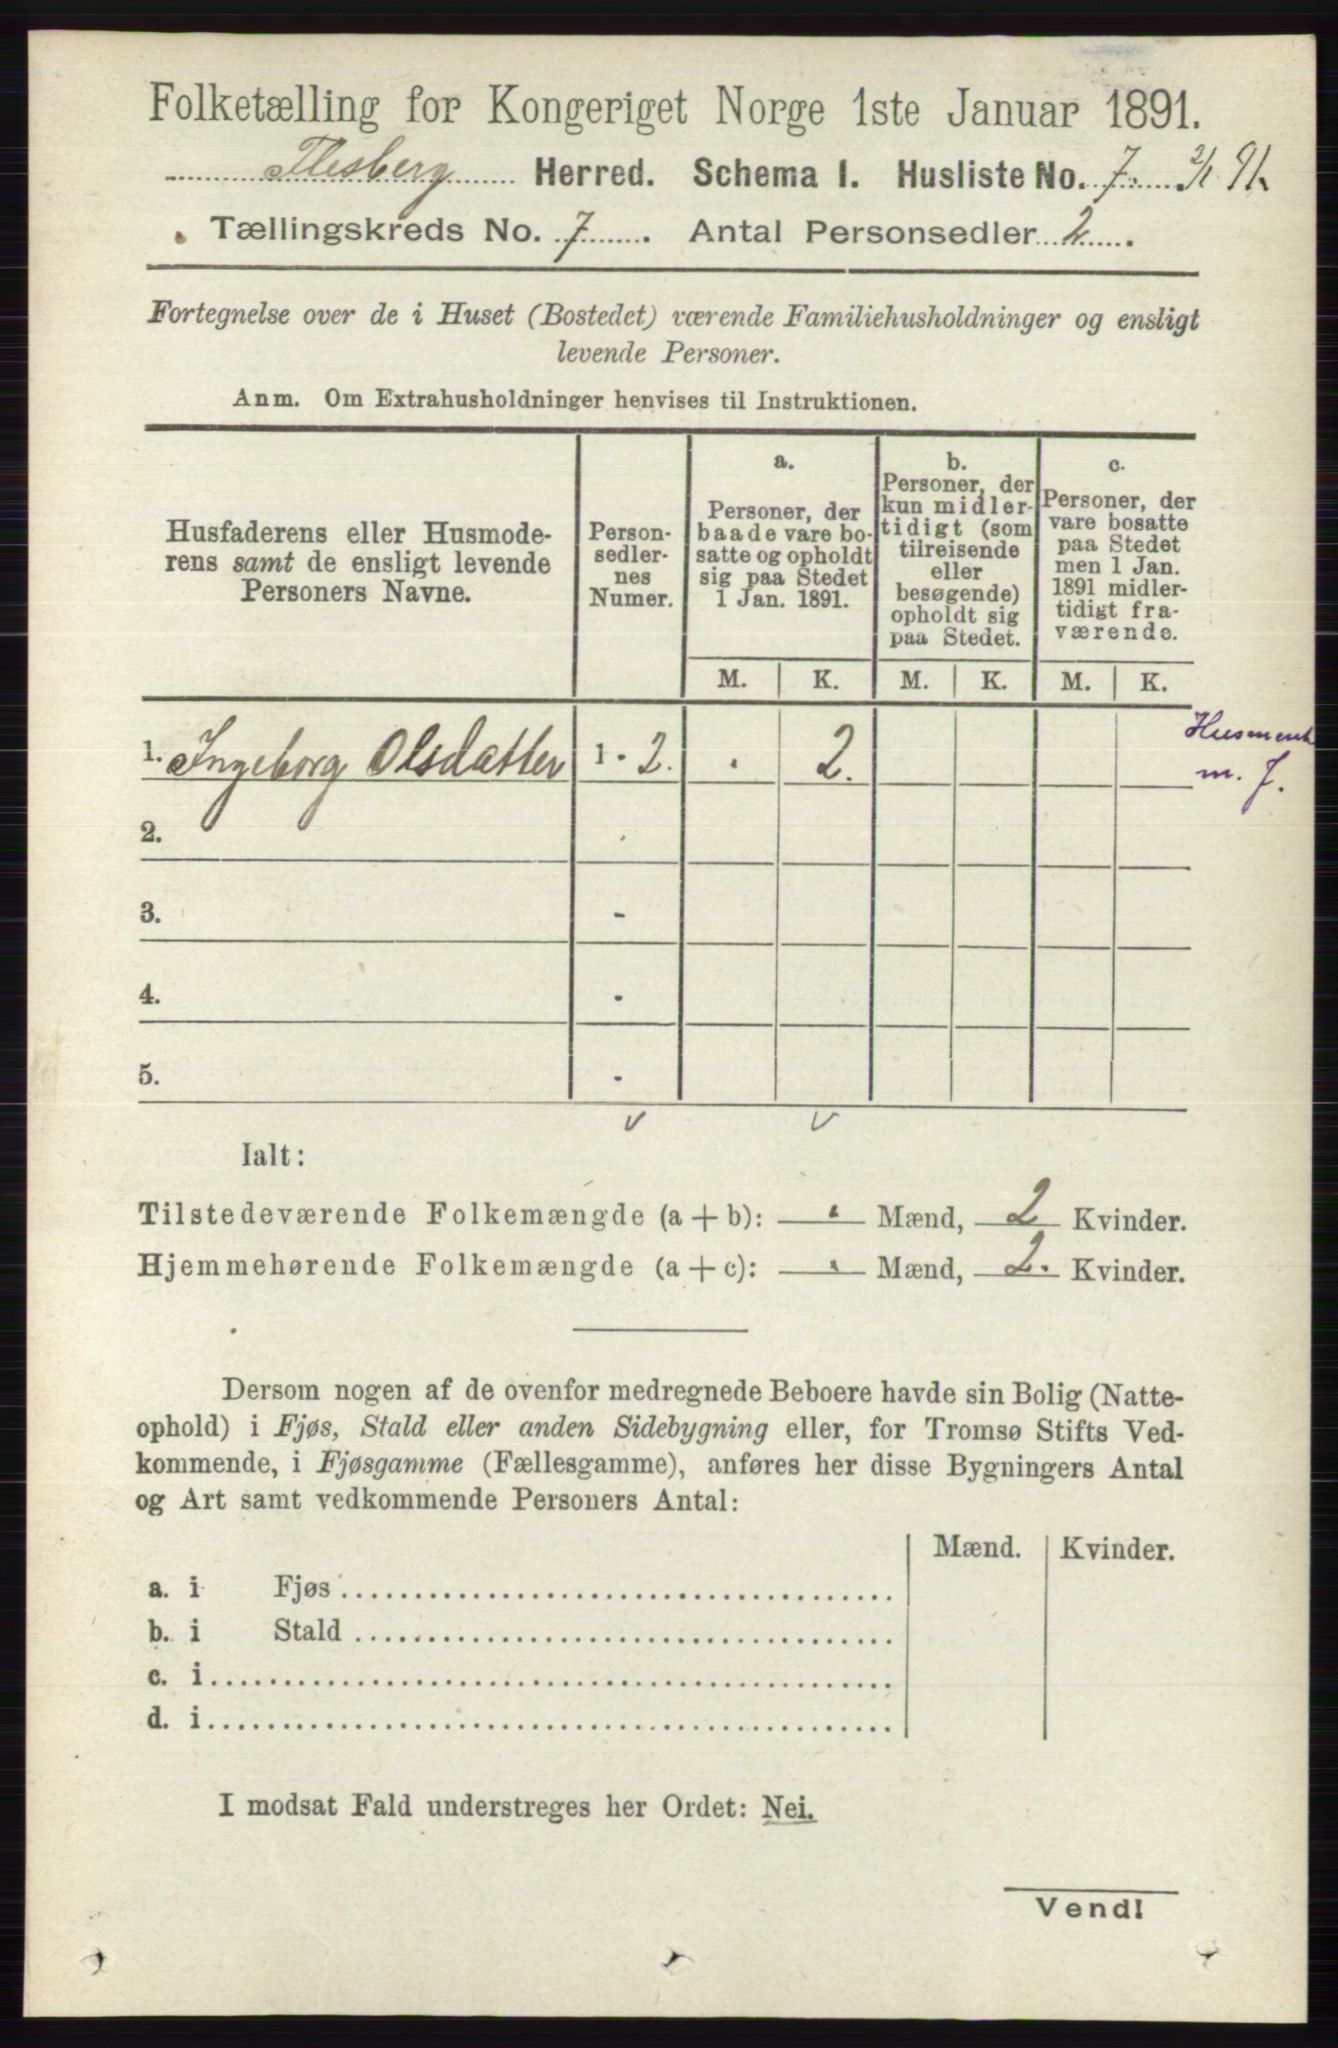 Folketælling for Kongeriget Norge 1ste Januar 1891.
Flesberg Herred. Schema I. Husliste No. 7. 2/1 91.
Tællingskreds No. 7. Antal Personsedler 2.
Fortegnelse over de i Huset (Bostedet) værende Familiehusholdninger og ensligt
levende Personer.
Anm. Om Extrahusholdninger henvises til Instruktionen.
Husfaderens eller Husmode-
rens samt de ensligt levende
Personers Navne.
Person-
sedler-
nes
Numer.
a.
Personer, der
baade vare bo-
satte og opholdt
sig paa Stedet
1 Jan. 1891.
b.
Personer, der
kun midler-
tidigt (som
tilreisende
eller
besøgende)
opholdt sig
paa Stedet.
c.
Personer, der
vare bosatte
paa Stedet
men 1 Jan.
1891 midler-
tidigt fra-
værende.
M. K. M. K. M. K.
1. Ingeborg Olsdatter 1 - 2. . 2.
m. J.
2. -
3. -
4. -
5. -
Ialt:
Tilstedeværende Folkemængde (a + b): . Mænd, 2 Kvinder.
Hjemmehørende Folkemængde (a + c): . Mænd, 2. Kvinder.
Dersom nogen af de ovenfor medregnede Beboere havde sin Bolig (Natte-
ophold) i Fjøs, Stald eller anden Sidebygning eller, for Tromsø Stifts Ved-
kommende, i Fjøsgamme (Fællesgamme), anføres her disse Bygningers Antal
og Art samt vedkommende Personers Antal:
Mænd. Kvinder.
a. i Fjøs
b. i Stald
c. i
d. i
I modsat Fald understreges her Ordet: Nei.
Vend!